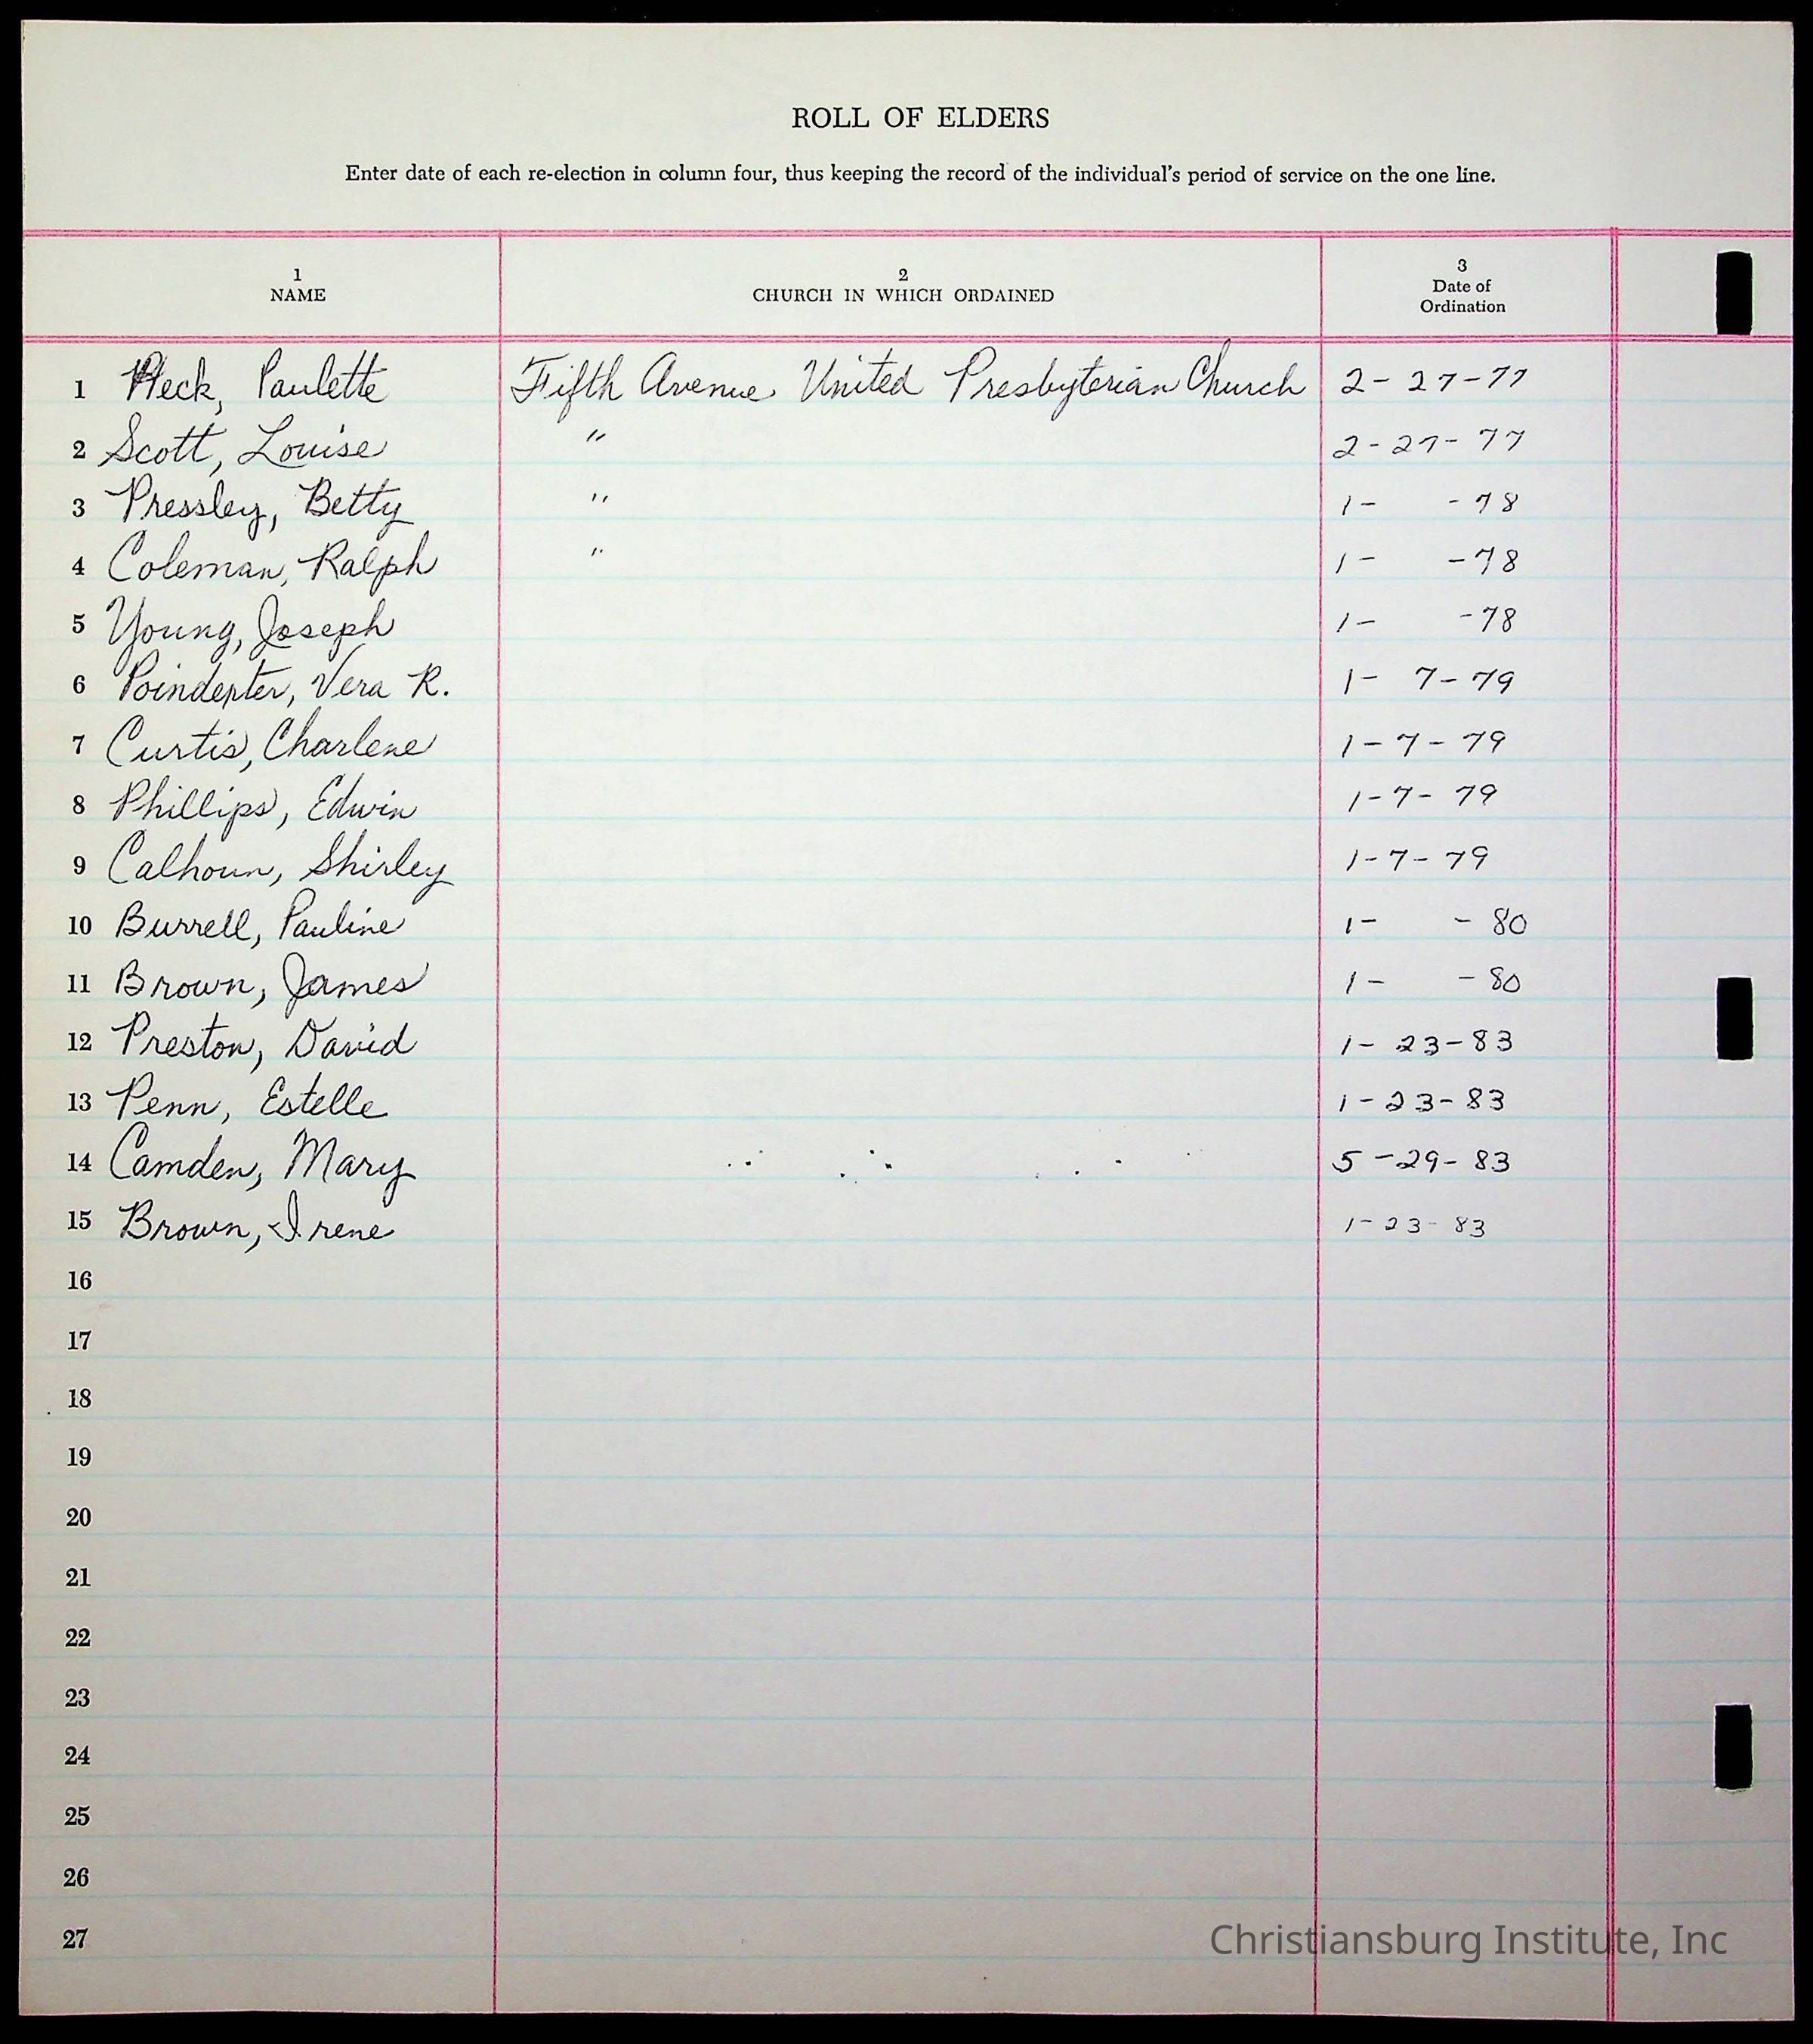 ROLL OF ELDERS
Enter date of each re-election in column four, thus keeping the record of the individual's period of service on the one line.
1 NAME 2 CHURCH IN WHICH ORDAINED 3 Date of Ordination
1 Heck, Paulette Fifth Avenue United Presbyterian Church 2-27-77
2 Scott, Louise " 2-27-77
3 Pressley, Betty " 1- -78
4 Coleman, Ralph " 1- -78
5 Young, Joseph 1- -78
6 Poindexter, Vera R. 1-7-79
7 Curtis, Charlene 1-7-79
8 Phillips, Edwin 1-7-79
9 Calhoun, Shirley 1-7-79
10 Burrell, Pauline 1- -80
11 Brown, James 1- -80
12 Preston, David 1-23-83
13 Penn, Estelle 1-23-83
14 Camden, Mary 5-29-83
15 Brown, Irene 1-23-83
16
17
18
19
20
21
22
23
24
25
26
27
Christiansburg Institute, Inc